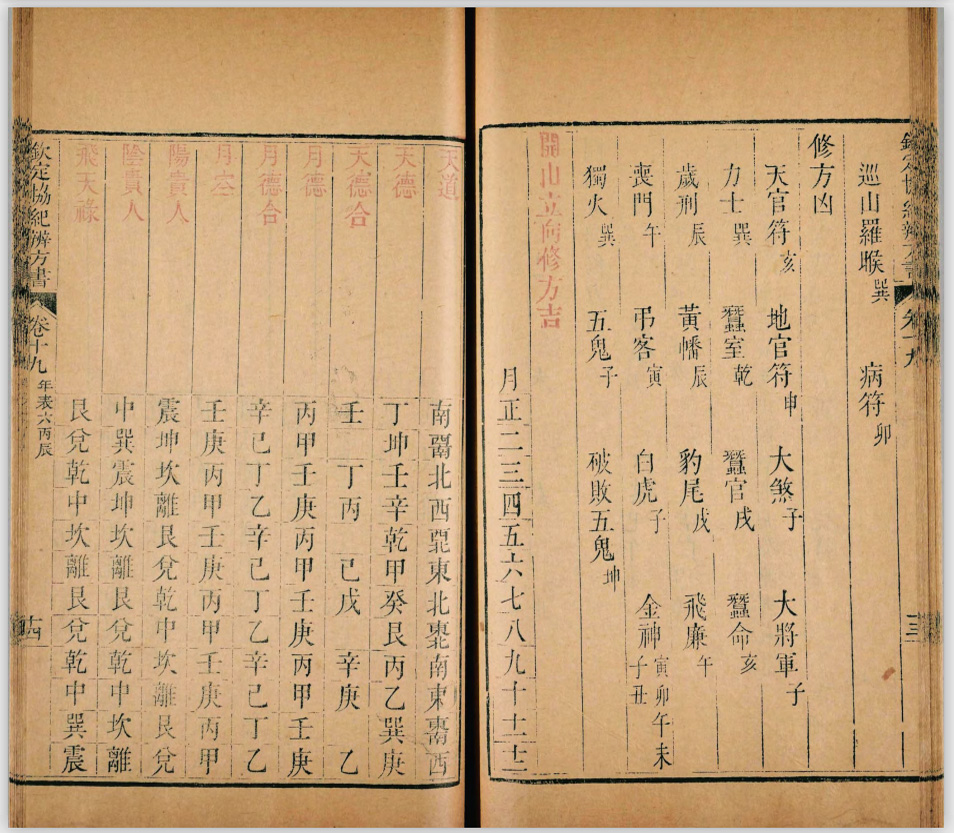 欽定協紀辨方書 卷十九 十三
巡山羅睺巽 病符卯
修方凶
天官符亥 地官符申 大煞子 大將軍子
力士巽 蠶室乾 蠶官戌 蠶命亥
歲刑辰 黃幡辰 豹尾戌 飛廉午
喪門午 弔客寅 白虎子 金神寅卯午未子丑
獨火巽 五鬼子 破敗五鬼坤
開山立向修方吉
月正二三四五六七八九十十一十二
天道 南西南北西西北東北東北南東東南西
天德 丁坤壬辛乾甲癸艮丙乙巽庚
天德合 壬 丁丙 己戊 辛庚 乙
月德 丙甲壬庚丙甲壬庚丙甲壬庚
月德合 辛己丁乙辛己丁乙辛己丁乙
月空 壬庚丙甲壬庚丙甲壬庚丙甲
陽貴人 震坤坎離艮兌乾中坎離艮兌
陰貴人 中巽震坤坎離艮兌乾中坎離
飛天祿 艮兌乾中坎離艮兌乾中巽震
欽定協紀辨方書 卷十九 年表六丙辰 十四